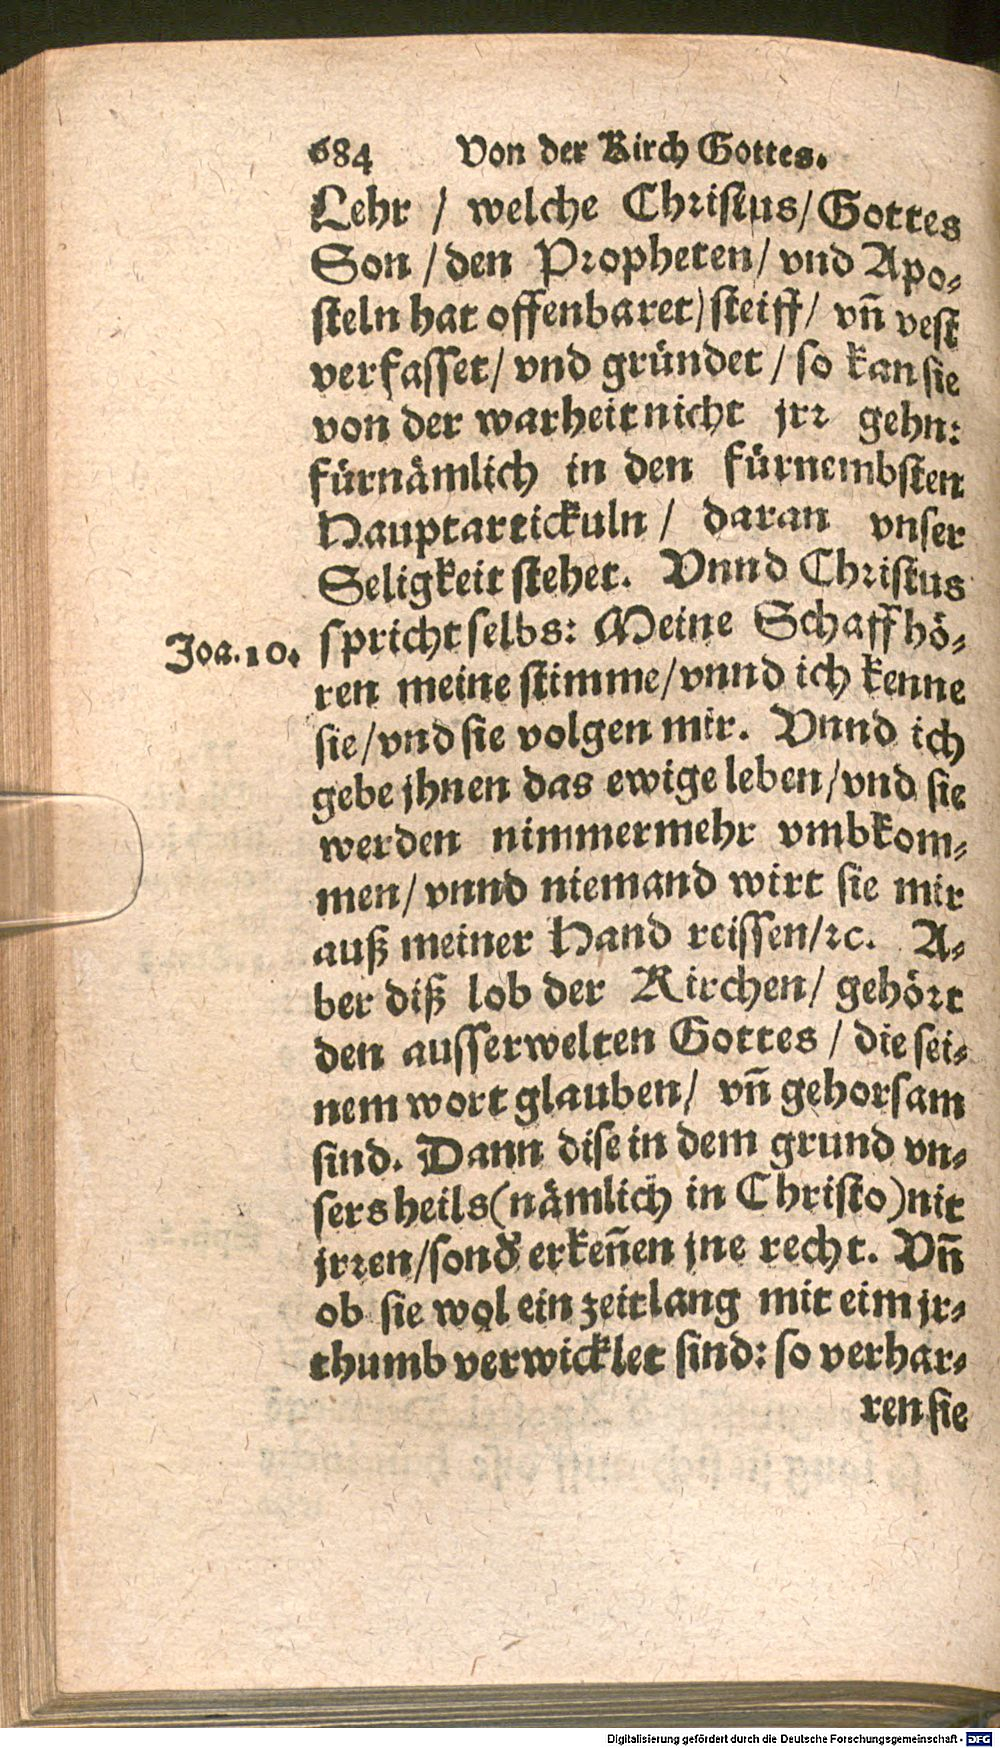 684 Von der Kirch Gottes.
Lehr / welche Christus/ Gottes
Son / den Propheten/ vnd Apo-
steln hat offenbaret) steiff/ vñ vest
verfasset/ vnd gründet / so kan sie
von der warheit nicht jrr gehn:
fürnämlich in den fürnembsten
Hauptartickuln / daran vnser
Seligkeit stehet. Vnnd Christus
Joa. 10. spricht selbs: Meine Schaff hö-
ren meine stimme/ vnnd ich kenne
sie/ vnd sie volgen mir. Vnnd ich
gebe jhnen das ewige leben/ vnd sie
werden nimmermehr vmbkom-
men/ vnnd niemand wirt sie mir
auß meiner Hand reissen/ ꝛc. A-
ber diß lob der Kirchen/ gehört
den ausserwelten Gottes / die sei-
nem wort glauben/ vñ gehorsam
sind. Dann dise in dem grund vn-
sers heils (nämlich in Christo) nit
jrren/ sonđ erkeñen jne recht. Vñ
ob sie wol ein zeitlang mit eim jr-
thumb verwicklet sind: so verhar-
ren sie
Digitalisierung gefördert durch die Deutsche Forschungsgemeinschaft - DFG